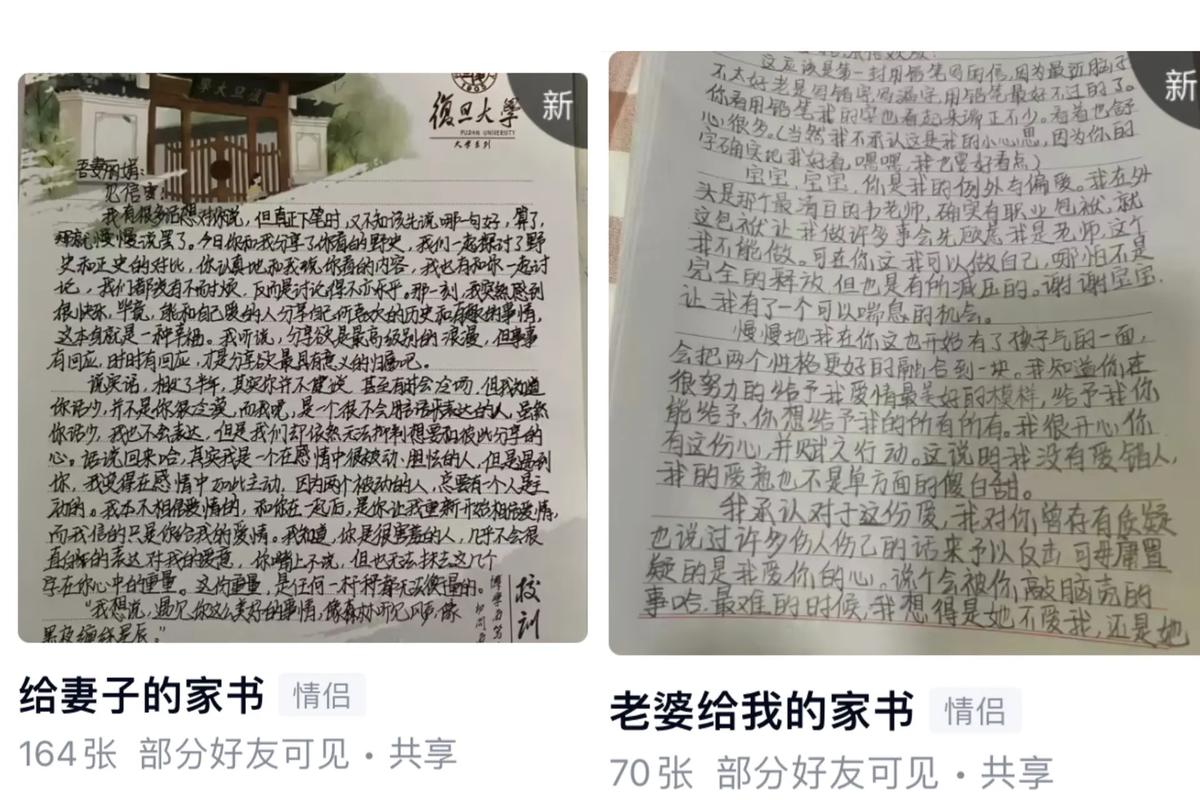 新
復旦大學
FUDAN UNIVERSITY
大学系列
吾妻丽娟:
见信安!
我有很多话想对你说，但真正下笔时，又不知该先说哪一句好，算了，
那就慢慢说罢了。今日你和我分享了你看的野史，我们一起探讨了野
史和正史的对比，你认真地和我说你看的内容，我也有和你一起讨
论，我们都没有不耐烦，反而是讨论得不亦乐乎。那一刻，我突然感到
很快乐，毕竟，能和自己爱的人分享自己所喜欢的历史和有趣的事情，
这本身就是一种幸福。我听说，分享欲是最高级别的浪漫，但事事
有回应，时时有回应，才是分享欲最具有意义的归宿吧。
说实话，相处了半年，其实你并不健谈，甚至有时会冷场，但我知道
你话少，并不是你很冷漠，而我呢，是一个很不会用话语表达的人，虽然
你话少，我也不会表达，但是我们却依然无法抑制想要和彼此分享的
心。话说回来哈，其实我是一个在感情中很被动、胆怯的人，但是遇到
你，我变得在感情中如此主动，因为两个被动的人，总要有一个人是主
动的。我本不相信爱情的，和你在一起后，是你让我重新开始相信爱情，
而我信的只是你给我的爱情。我知道，你是很害羞的人，几乎不会很
直白的表达对我的爱意，你嘴上不说，但也无法抹去这几个
字在你心中的重量。这份重量，是任何一杆秤都无法衡量的。
“我想说，遇见你这么美好的事情，像森林听见风声，像
黑夜缠绵星辰。”
校训
给妻子的家书 情侣
164张 部分好友可见・共享
新
这应该是第一封用铅笔写的信，因为最近脑子
不太好老是写错字写漏字，用铅笔最好不过的了。
你看用铅笔我的字也看起来端正不少。看着也舒
心很多。(当然我不承认这是我的小心思，因为你的
字确实比我好看，嘿嘿，我也要好看点)
宝宝，宝宝，你是我的例外与偏爱。我在外
头是那个最清白的书老师，确实有职业包袱，就
这包袱让我做许多事会先顾忌我是老师，这个
我不能做。可在你这我可以做自己，哪怕不是
完全的释放，但也是有所减压的。谢谢宝宝，
让我有了一个可以喘息的机会。
慢慢地我在你这也开始有了孩子气的一面，
会把两个性格更好的融合到一块。我知道你在
很努力的给予我爱情最美好的模样，给予我你
能给予、你想给予我的所有所有。我很开心，你
有这份心，并赋之行动。这说明我没有爱错人，
我的爱意也不是单方面的傻白甜。
我承认对于这份爱，我对你曾存有质疑
也说过许多伤人伤己的话来予以反击，可毋庸置
疑的是我爱你的心。说个会被你敲脑壳的
事哈，最难的时候，我想得是她不爱我，还是她
老婆给我的家书 情侣
70张 部分好友可见・共享